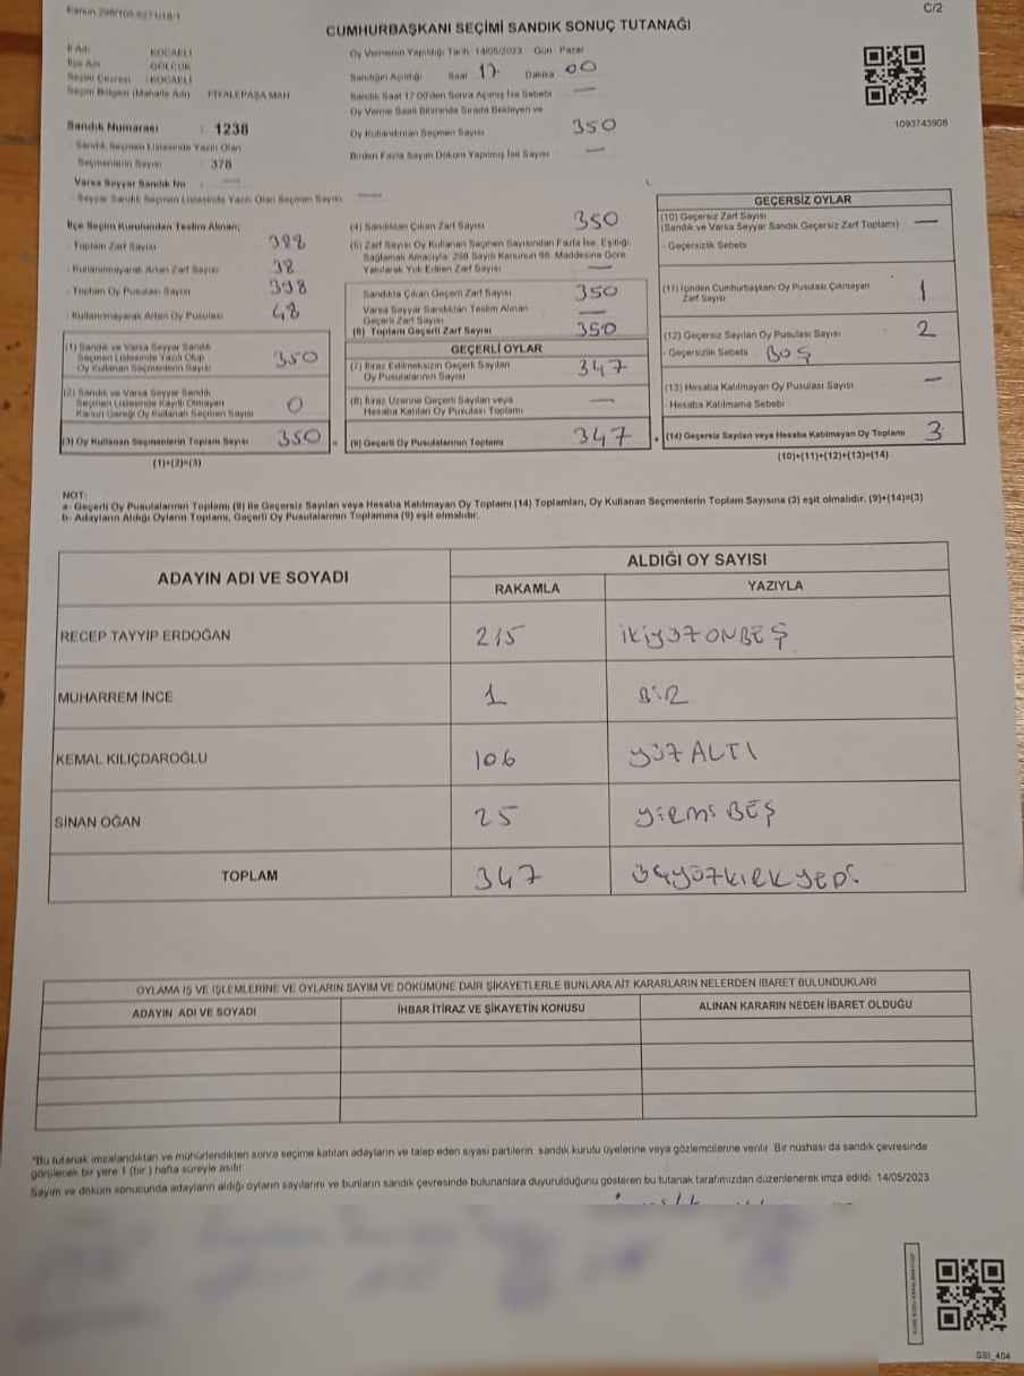 C/2
CUMHURBAŞKANI SEÇİMİ SANDIK SONUÇ TUTANAĞI
İl Adı KOCAELİ
İlçe Adı GÖLCÜK
Seçim Çevresi KOCAELİ
Seçim Bölgesi (Mahalle Adı) PİYALEPAŞA MAH
Sandık Numarası : 1238
Sandık Seçmen Listesinde Yazılı Olan
Seçmenlerin Sayısı 378
Varsa Seyyar Sandık No : —
Seyyar Sandık Seçmen Listesinde Yazılı Olan Seçmen Sayısı —
Oy Vermenin Yapıldığı Tarih 14/05/2023 Gün Pazar
Sandığın Açıldığı Saat 17 Dakika 00
Sandık Saat 17:00'den Sonra Açılmış İse Sebebi —
Oy Verme Saati Bitiminde Sırada Bekleyen ve
Oy Kullandırılan Seçmen Sayısı 350
Birden Fazla Sayım Döküm Yapılmış İse Sayısı —
1093743908
İlçe Seçim Kurulundan Teslim Alınan;
Toplam Zarf Sayısı 388
Kullanılmayarak Artan Zarf Sayısı 38
Toplam Oy Pusulası Sayısı 398
Kullanılmayarak Artan Oy Pusulası 48
(1) Sandık ve Varsa Seyyar Sandık
Seçmen Listesinde Yazılı Olup
Oy Kullanan Seçmenlerin Sayısı 350
(2) Sandık ve Varsa Seyyar Sandık
Seçmen Listesinde Kayıtlı Olmayan
Kanun Gereği Oy Kullanan Seçmen Sayısı 0
(3) Oy Kullanan Seçmenlerin Toplam Sayısı 350
(1)+(2)=(3)
(4) Sandıktan Çıkan Zarf Sayısı 350
(5) Zarf Sayısı Oy Kullanan Seçmen Sayısından Fazla İse, Eşitliği
Sağlamak Amacıyla 298 Sayılı Kanunun 98. Maddesine Göre
Yakılarak Yok Edilen Zarf Sayısı —
Sandıkta Çıkan Geçerli Zarf Sayısı 350
Varsa Seyyar Sandıktan Teslim Alınan
Geçerli Zarf Sayısı —
(6) Toplam Geçerli Zarf Sayısı 350
GEÇERLİ OYLAR
(7) İtiraz Edilmeksizin Geçerli Sayılan
Oy Pusulalarının Sayısı 347
(8) İtiraz Üzerine Geçerli Sayılan veya
Hesaba Katılan Oy Pusulası Toplamı —
(9) Geçerli Oy Pusulalarının Toplamı 347
GEÇERSİZ OYLAR
(10) Geçersiz Zarf Sayısı
(Sandık ve Varsa Seyyar Sandık Geçersiz Zarf Toplamı) —
- Geçersizlik Sebebi
(11) İçinden Cumhurbaşkanı Oy Pusulası Çıkmayan
Zarf Sayısı 1
(12) Geçersiz Sayılan Oy Pusulası Sayısı 2
- Geçersizlik Sebebi BOŞ
(13) Hesaba Katılmayan Oy Pusulası Sayısı —
- Hesaba Katılmama Sebebi
(14) Geçersiz Sayılan veya Hesaba Katılmayan Oy Toplamı 3
(10)+(11)+(12)+(13)=(14)
NOT:
a- Geçerli Oy Pusulalarının Toplamı (9) ile Geçersiz Sayılan veya Hesaba Katılmayan Oy Toplamı (14) Toplamları, Oy Kullanan Seçmenlerin Toplam Sayısına (3) eşit olmalıdır. (9)+(14)=(3)
b- Adayların Aldığı Oyların Toplamı, Geçerli Oy Pusulalarının Toplamına (9) eşit olmalıdır.
ADAYIN ADI VE SOYADI
ALDIĞI OY SAYISI
RAKAMLA YAZIYLA
RECEP TAYYİP ERDOĞAN 215 İKİYÜZONBEŞ
MUHARREM İNCE 1 BİR
KEMAL KILIÇDAROĞLU 106 YÜZ ALTI
SİNAN OĞAN 25 YİRMİ BEŞ
TOPLAM 347 ÜÇYÜZKIRKYEDİ
OYLAMA İŞ VE İŞLEMLERİNE VE OYLARIN SAYIM VE DÖKÜMÜNE DAİR ŞİKAYETLERLE BUNLARA AİT KARARLARIN NELERDEN İBARET BULUNDUKLARI
ADAYIN ADI VE SOYADI İHBAR İTİRAZ VE ŞİKAYETİN KONUSU ALINAN KARARIN NEDEN İBARET OLDUĞU
"Bu tutanak imzalandıktan ve mühürlendikten sonra seçime katılan adayların ve talep eden siyasi partilerin sandık kurulu üyelerine veya gözlemcilerine verilir. Bir nüshası da sandık çevresinde
görülecek bir yere 1 (bir) hafta süreyle asılır.
Sayım ve döküm sonucunda adayların aldığı oyların sayılarını ve bunların sandık çevresinde bulunanlara duyurulduğunu gösteren bu tutanak tarafımızdan düzenlenerek imza edildi. 14/05/2023
GSI_404